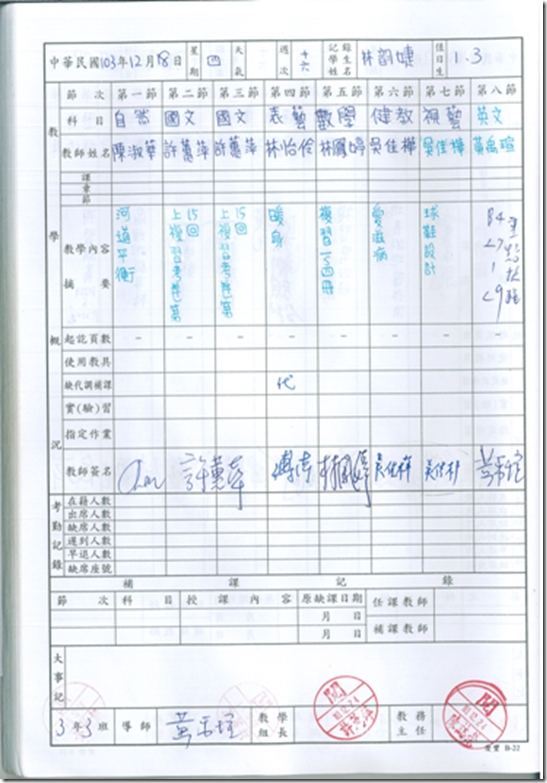 中華民國103年12月18日 星期 四 天氣 週次 十六 記錄學生姓名 林韵婕 值日生 1.3
節次 第一節 第二節 第三節 第四節 第五節 第六節 第七節 第八節
科目 自然 國文 國文 表藝 數學 健教 視藝 英文
教師姓名 陳淑華 許蕙萍 許蕙萍 林怡伶 林鳳婷 吳佳樺 吳佳樺 黃禹瑄
課
章
節
教學概況
教學內容摘要 河道平衡 15回上複習考卷 15回上複習考卷 暖身 複習 愛滋病 球鞋設計 B4 L7 L9
起訖頁數 – – – – – – – –
使用教具
缺代調補課 代
實(驗)習
指定作業
教師簽名 許蕙萍 吳佳樺
考勤記錄
在籍人數
出席人數
缺席人數
遲到人數
早退人數
缺席座號
補課記錄
節次 科目 授課內容 原缺課日期 任課教師
月 日
月 日 補課教師
大事記
3年3班 導師 教學組長 閱 教務主任 閱
B-22